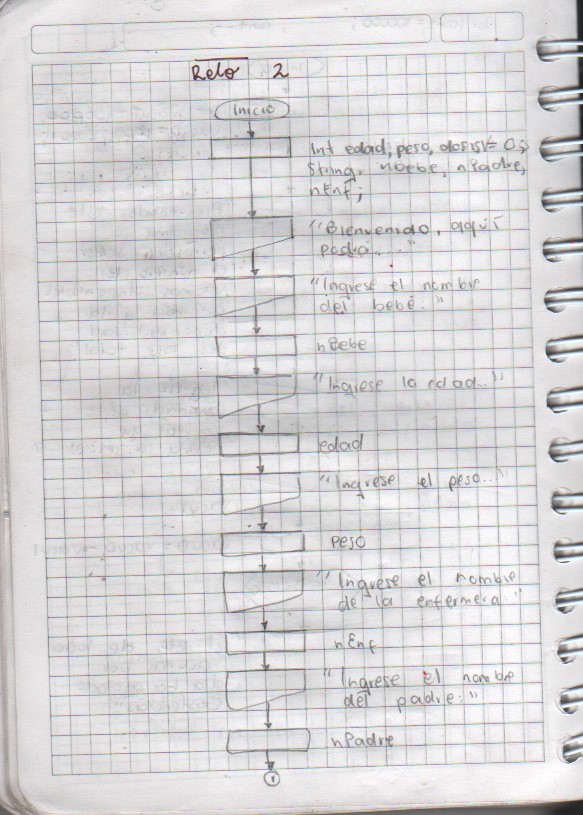 Reto 2
Inicio
Int edad, peso, dosisV= 0;
String, nBebe, nPadre,
nEnf;
"Bienvenido, aquí
podra..."
"Ingrese el nombre
del bebé."
nBebe
"Ingrese la edad..."
edad
"Ingrese el peso..."
peso
"Ingrese el nombre
de la enfermera."
nEnf
"Ingrese el nombre
del padre:"
nPadre
1